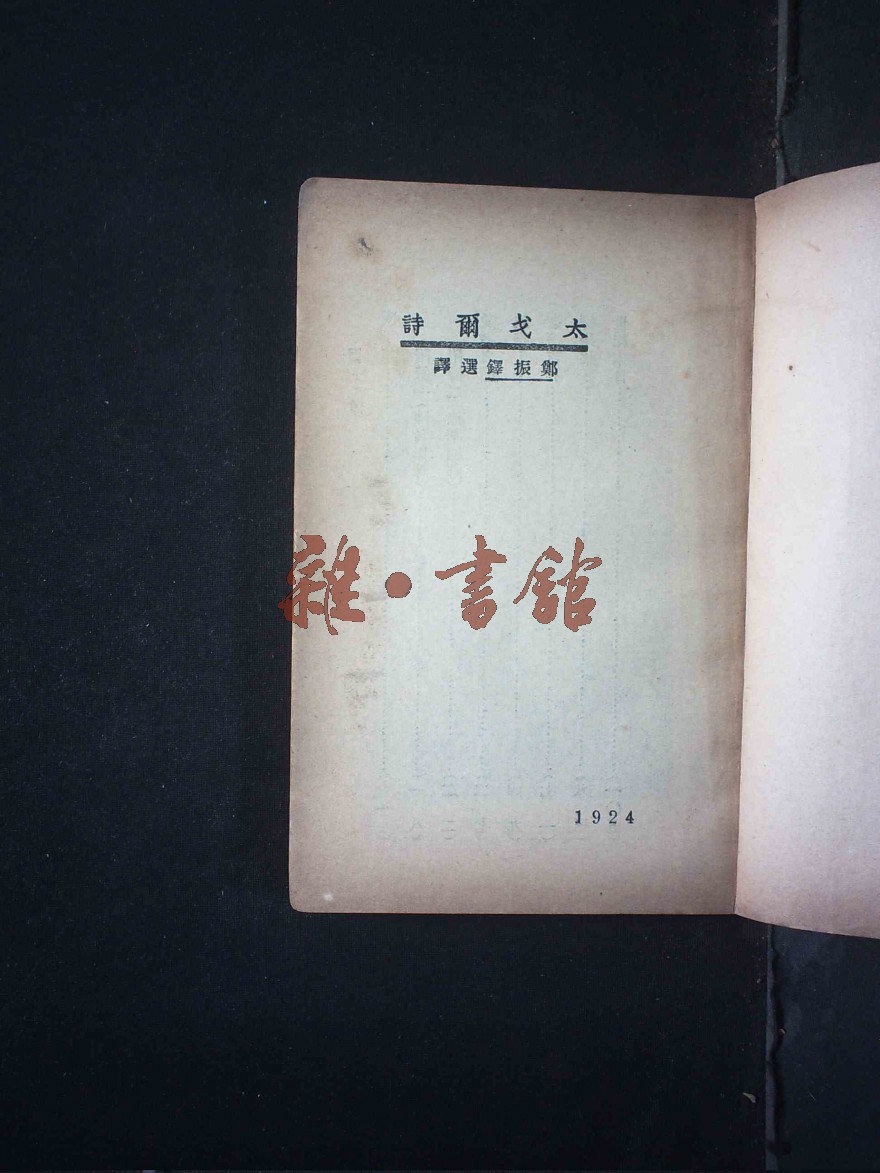 太戈爾詩
鄭振鐸選譯
雜·書館
1924